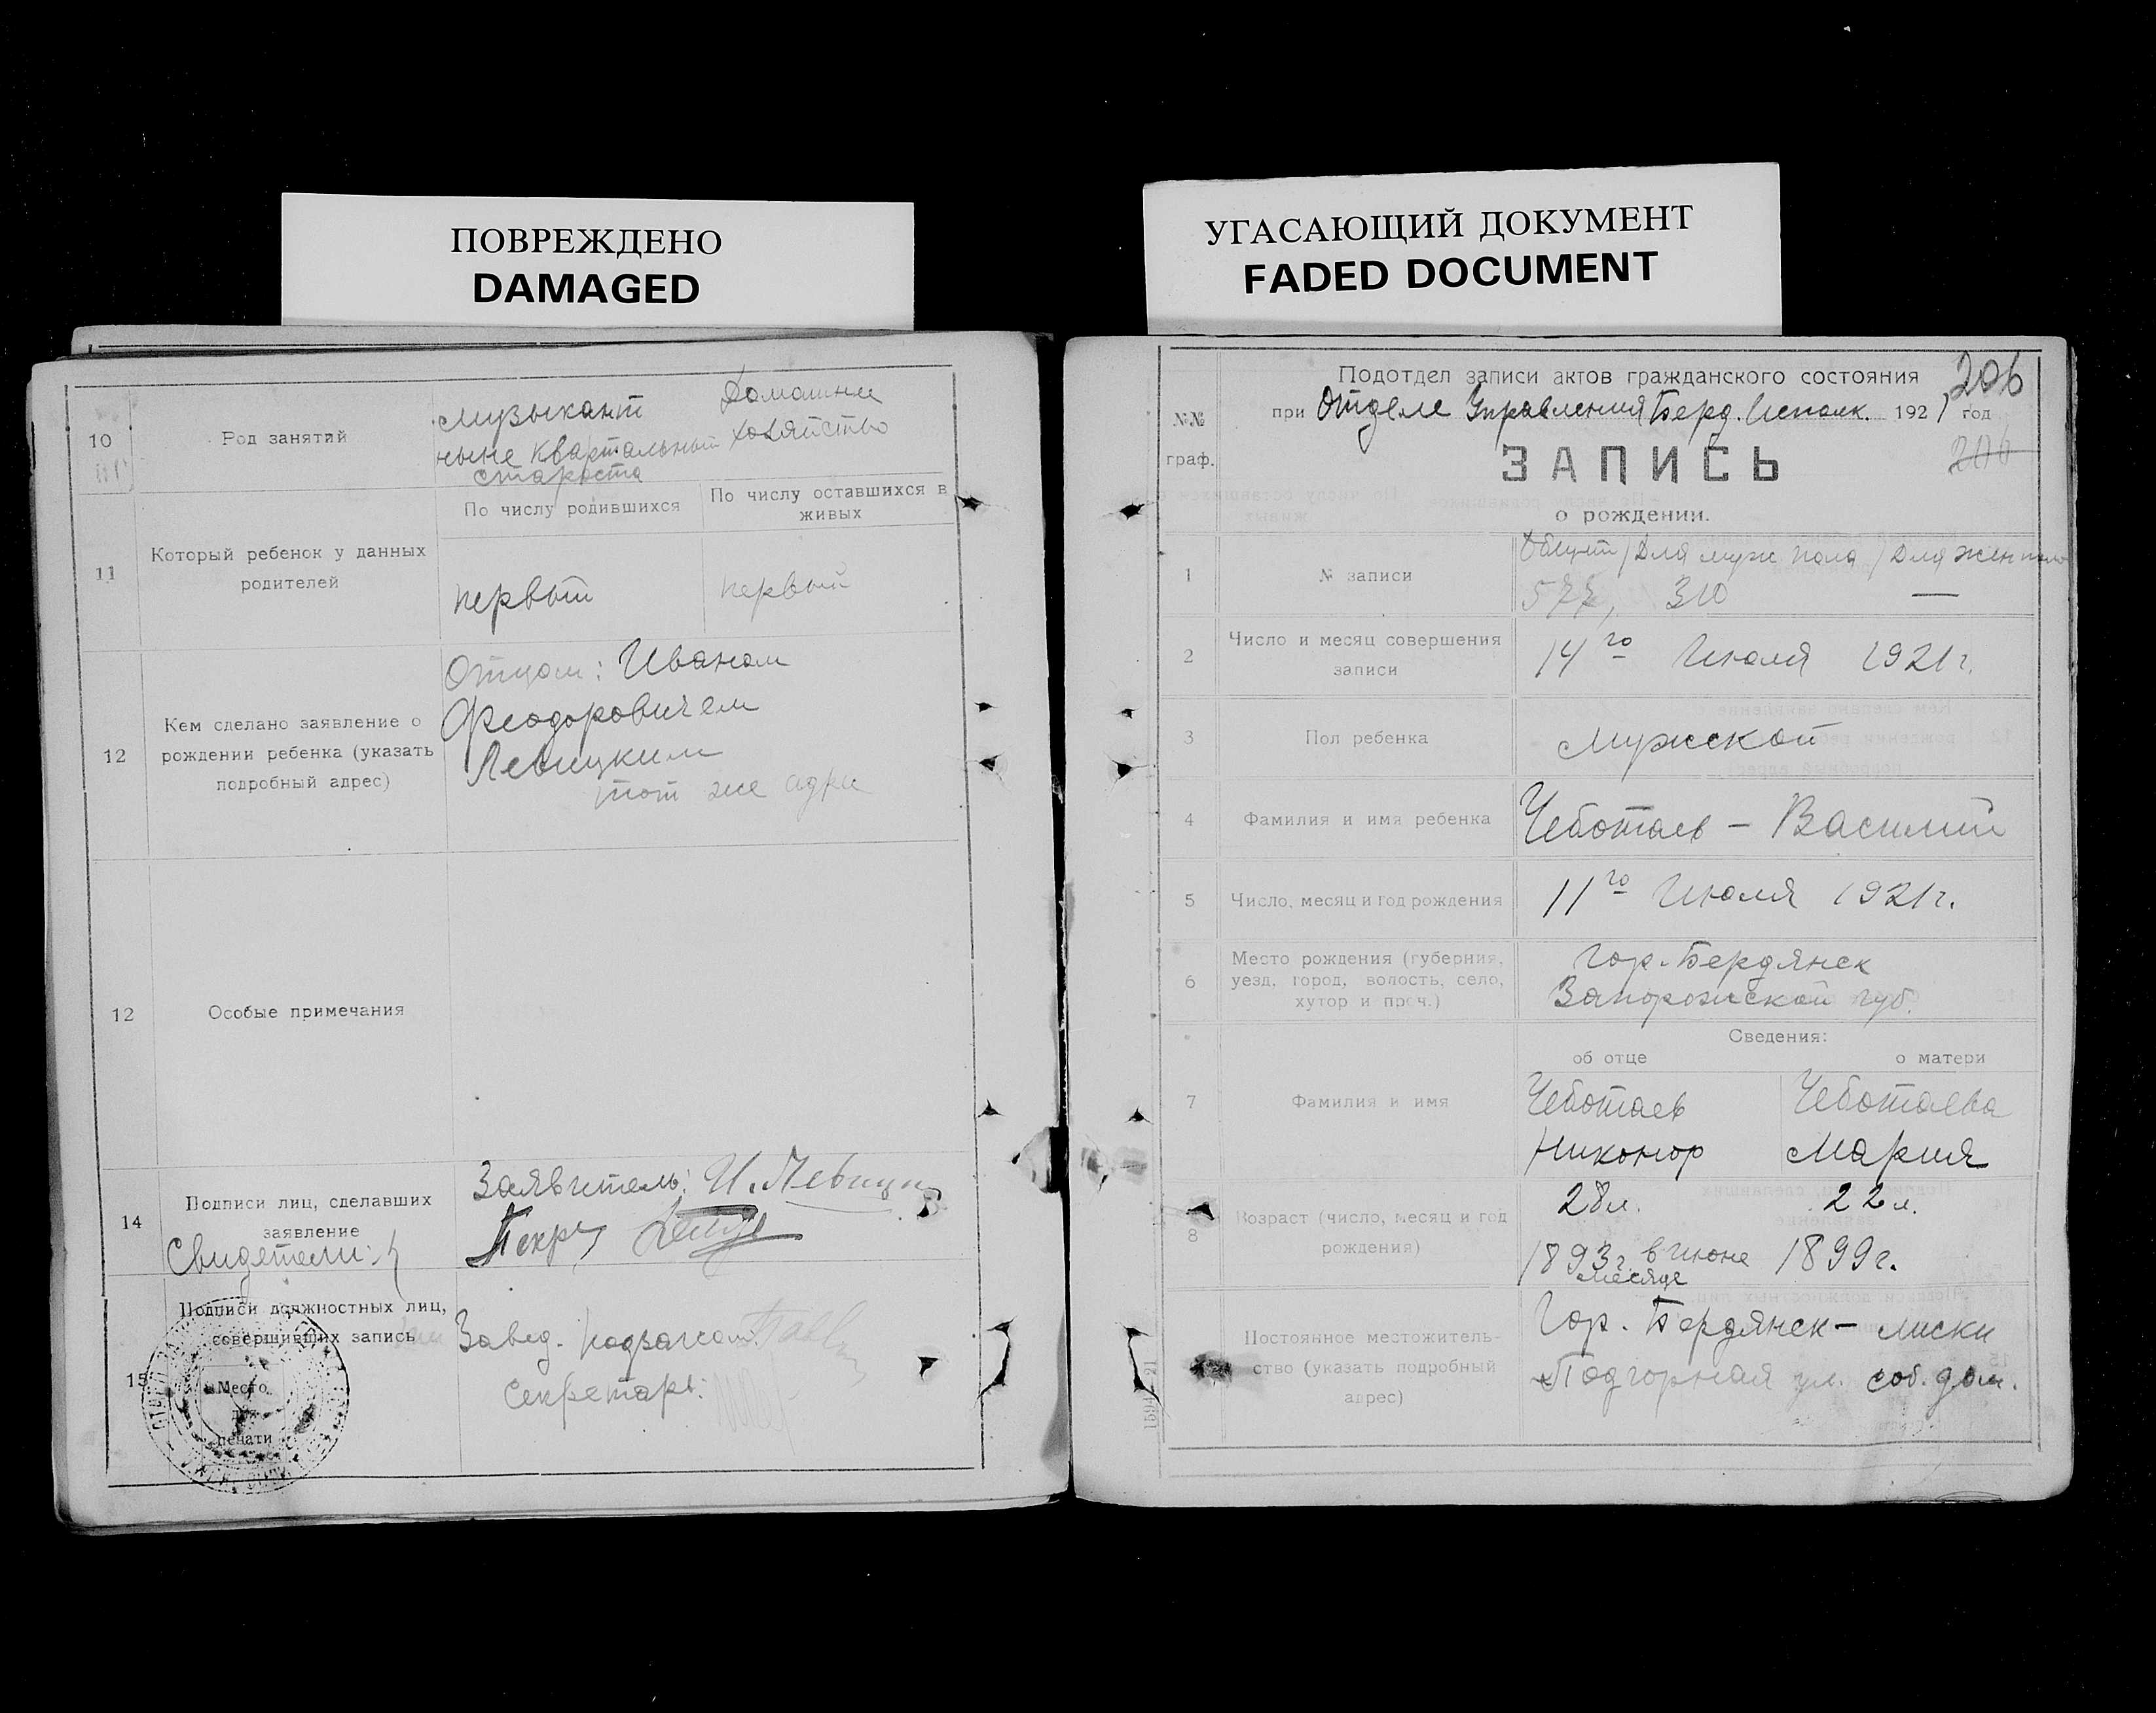 ПОВРЕЖДЕНО
DAMAGED
10
Род занятий
Музыкант
ныне квартальный
староста
Домашнее
хозяйство
11
Который ребенок у данных
родителей
По числу родившихся
По числу оставшихся в
живых
первый
первый
12
Кем сделано заявление о
рождении ребенка (указать
подробный адрес)
Отцом: Иваном
Феодоровичем
Левицким
тот же адрес
12
Особые примечания
14
Подписи лиц, сделавших
заявление
Свидетели:
Заявитель: И. Левицкий
15
Подписи должностных лиц,
совершивших запись
Место
для
печати
Завед. подзагсом
Секретарь:
УГАСАЮЩИЙ ДОКУМЕНТ
FADED DOCUMENT
206
Подотдел записи актов гражданского состояния
при Отделе Управления Берд. Исполк. 1921 год
№№
граф.
206
ЗАПИСЬ
о рождении.
1
№ записи
Общий / Для муж пола / Для жен пола
577, 310 —
2
Число и месяц совершения
записи
14го Июля 1921 г.
3
Пол ребенка
Мужской
4
Фамилия и имя ребенка
Чеботаев - Василий
5
Число, месяц и год рождения
11го Июля 1921 г.
6
Место рождения (губерния,
уезд, город, волость, село,
хутор и проч.)
Гор. Бердянск
Запорожской губ.
Сведения:
об отце
о матери
7
Фамилия и имя
Чеботаев
Никонор
Чеботаева
Мария
8
Возраст (число, месяц и год
рождения)
28 л.
1893 г. в июне
месяце
22 л.
1899 г.
Постоянное местожитель-
ство (указать подробный
адрес)
Гор. Бердянск - лиски
Подгорная ул. соб. дом.